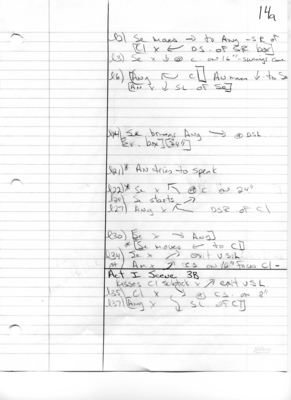 14a
l2) Se moves → to Ang - SR of
[Cl x ← DS. of SR box]
l3) Se x ↓ @ c on 16"-swings cane
l6) [Ang ↖ C] An moves ↓ to Se
[An x ↓ SL of Se]
Se brings Ang → @ DSL
box]
l21)* An tries to speak
l22)* Se x ↖ @ c on 24"
l24) Se starts ↗
l27) Ang x ↖ DSR of Cl
l30) [Se x → Ang]
*[Se moves ← to C]
l34) Se x ↗ exit USL
An x ↗ CS on 16" Faces Cl -
Act I Scene 3B
kisses Cl x ↗ exit USL
l35) Cl x @ CS. on 8"
l37) [Ang x SL of C]